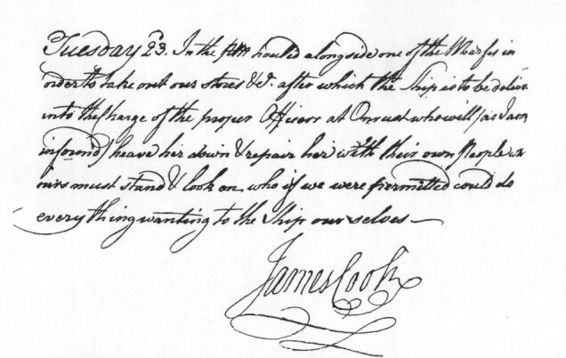 Tuesday 23. In the PM hauled alongside one of the Warfes in
order to take out our stores &c. after which the Ship is to be deliver
into the Charge of the proper Officers at Onrust who will (as I am
inform'd) heave her down & repair her with their own People
ours must stand & look on, who if we were permitted could do
every thing wanting to the Ship our selves—
James Cook